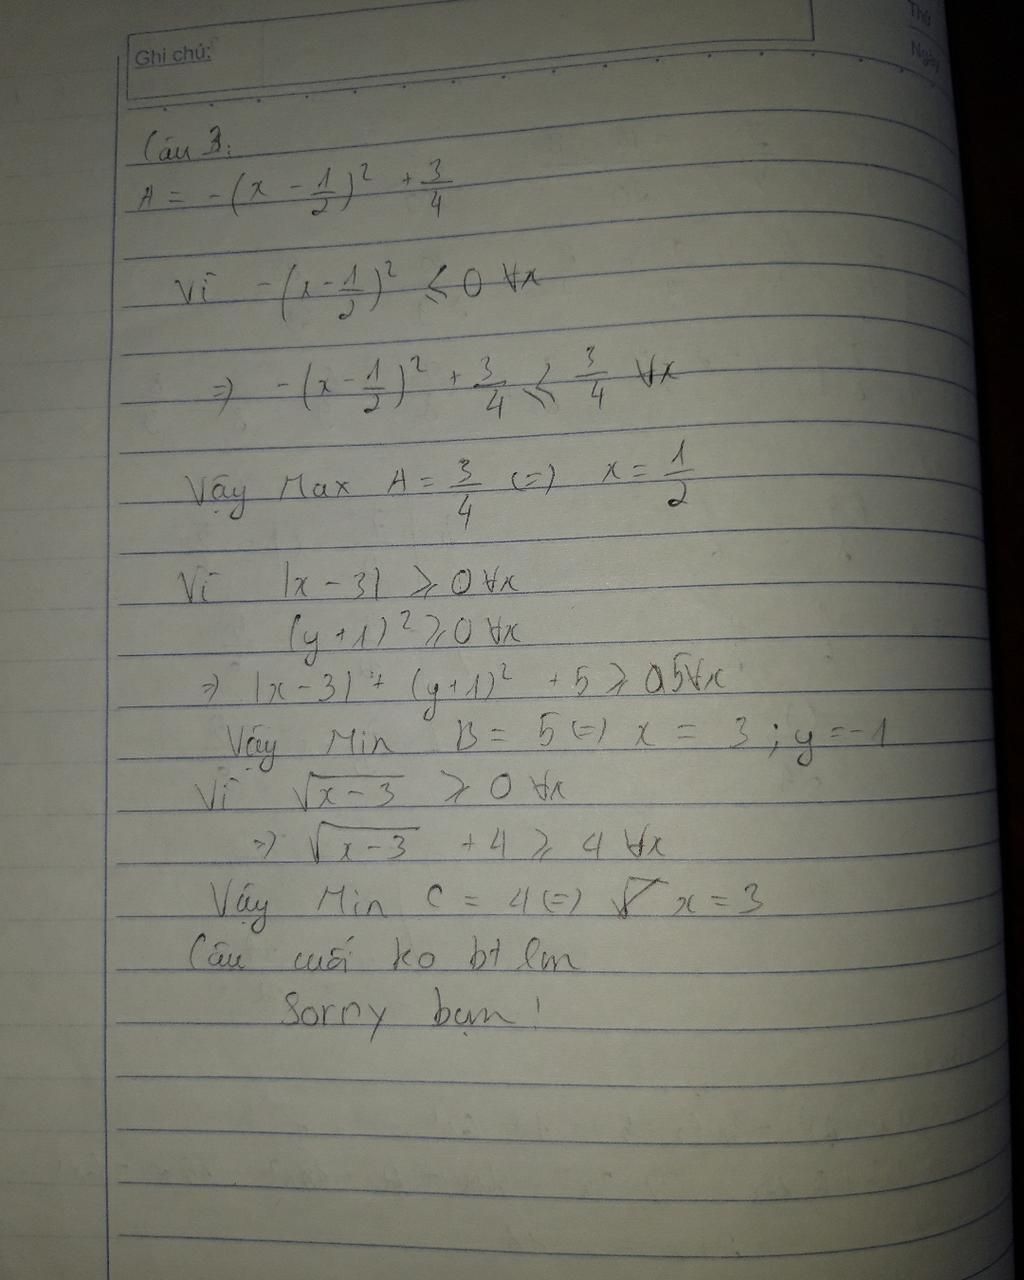 Thứ
Ghi chú:
Ngày
Câu 3:
A = -(x - 1/2)² + 3/4
Vì -(x - 1/2)² ⩽ 0 ∀x
=> -(x - 1/2)² + 3/4 ⩽ 3/4 ∀x
Vậy Max A = 3/4 (=) x = 1/2
Vì |x - 3| ⩾ 0 ∀x
(y + 1)² ⩾ 0 ∀x
=> |x - 3| + (y + 1)² + 5 ⩾ 5 ∀x
Vậy Min B = 5 (=) x = 3 ; y = -1
Vì √(x - 3) ⩾ 0 ∀x
=> √(x - 3) + 4 ⩾ 4 ∀x
Vậy Min C = 4 (=) x = 3
Câu cuối ko bt lm
Sorry bạn !